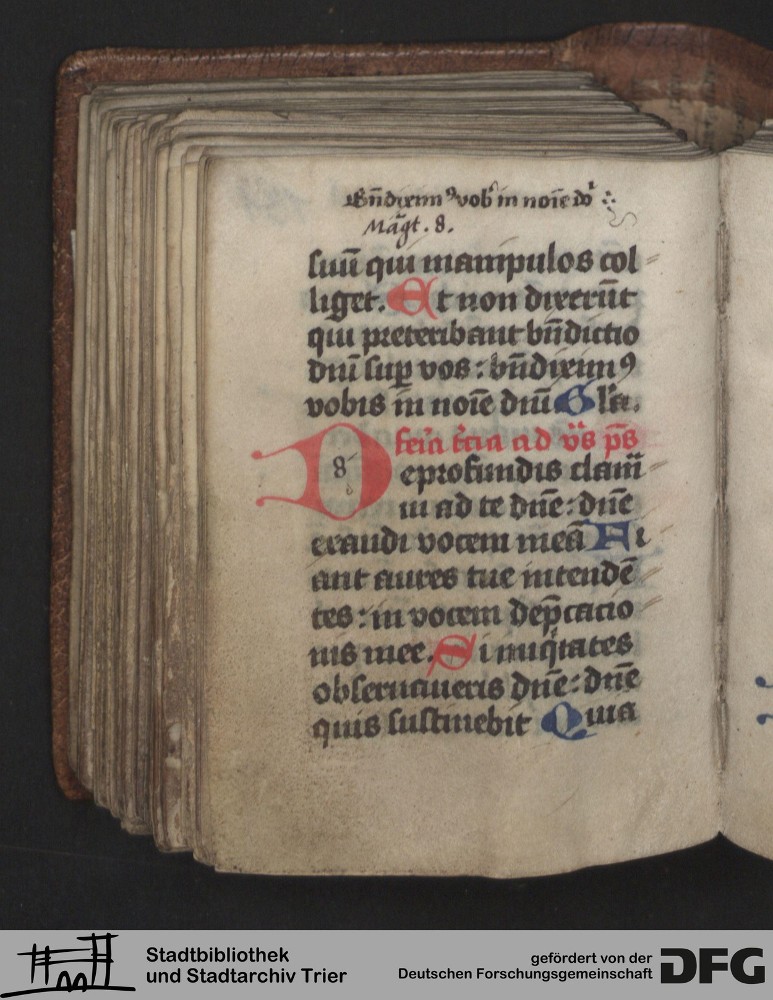 Bn̄diximꝰ vob' in noīe do'
Māgt. 8.
suū qui manipulos col⸗
liget. Et non dixerūt
qui preteribant bn̄dictio
dn̄i suꝑ vos : bn̄diximꝰ
vobis in noīe dn̄i Gl'a.
feria t'cia ad v̄s p̄s
8 De profundis clam̄⸗
ui ad te dn̄e : dn̄e
exaudi vocem meā Fi
ant aures tue intendē
tes : in vocem dep̄cacio
nis mee. Si iniq'tates
obseruaueris dn̄e : dn̄e
quis sustinebit Quia
Stadtbibliothek
und Stadtarchiv Trier
gefördert von der
Deutschen Forschungsgemeinschaft
DFG